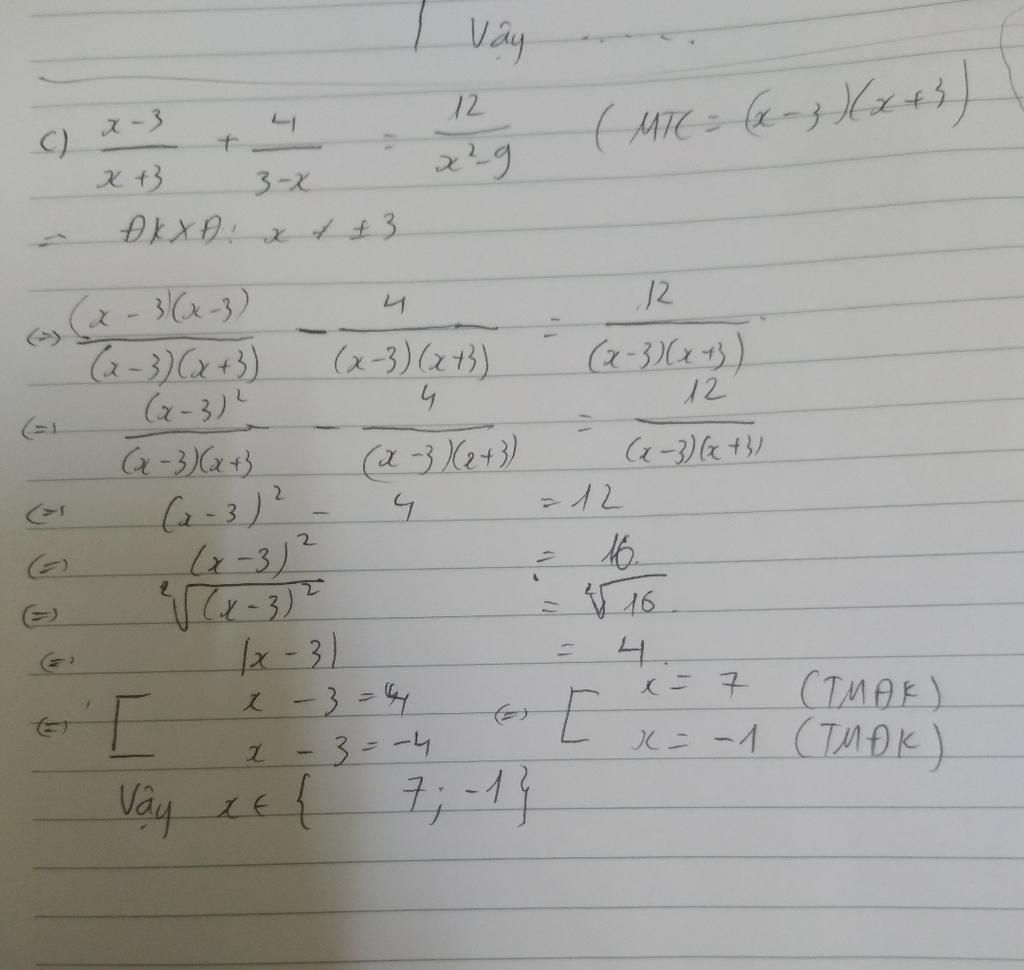 Vậy .......
c) \frac{x-3}{x+3} + \frac{4}{3-x} = \frac{12}{x²-9} (MTC = (x-3)(x+3)
= ĐKXĐ: x ≠ ±3
(=) \frac{(x-3)(x-3)}{(x-3)(x+3)} - \frac{4}{(x-3)(x+3)} = \frac{12}{(x-3)(x+3)}
(=) \frac{(x-3)²}{(x-3)(x+3} - \frac{4}{(x-3)(x+3)} = \frac{12}{(x-3)(x+3)}
(=) (x-3)² - 4 = 12
(=) (x-3)² = 16
(=) \sqrt[2]{(x-3)²} = \sqrt[2]{16}
(=) |x-3| = 4
(=) [ x - 3 = 4 (=) [ x = 7 (TMĐK)
x - 3 = -4 x = -1 (TMĐK)
Vậy x ∈ { 7; -1}